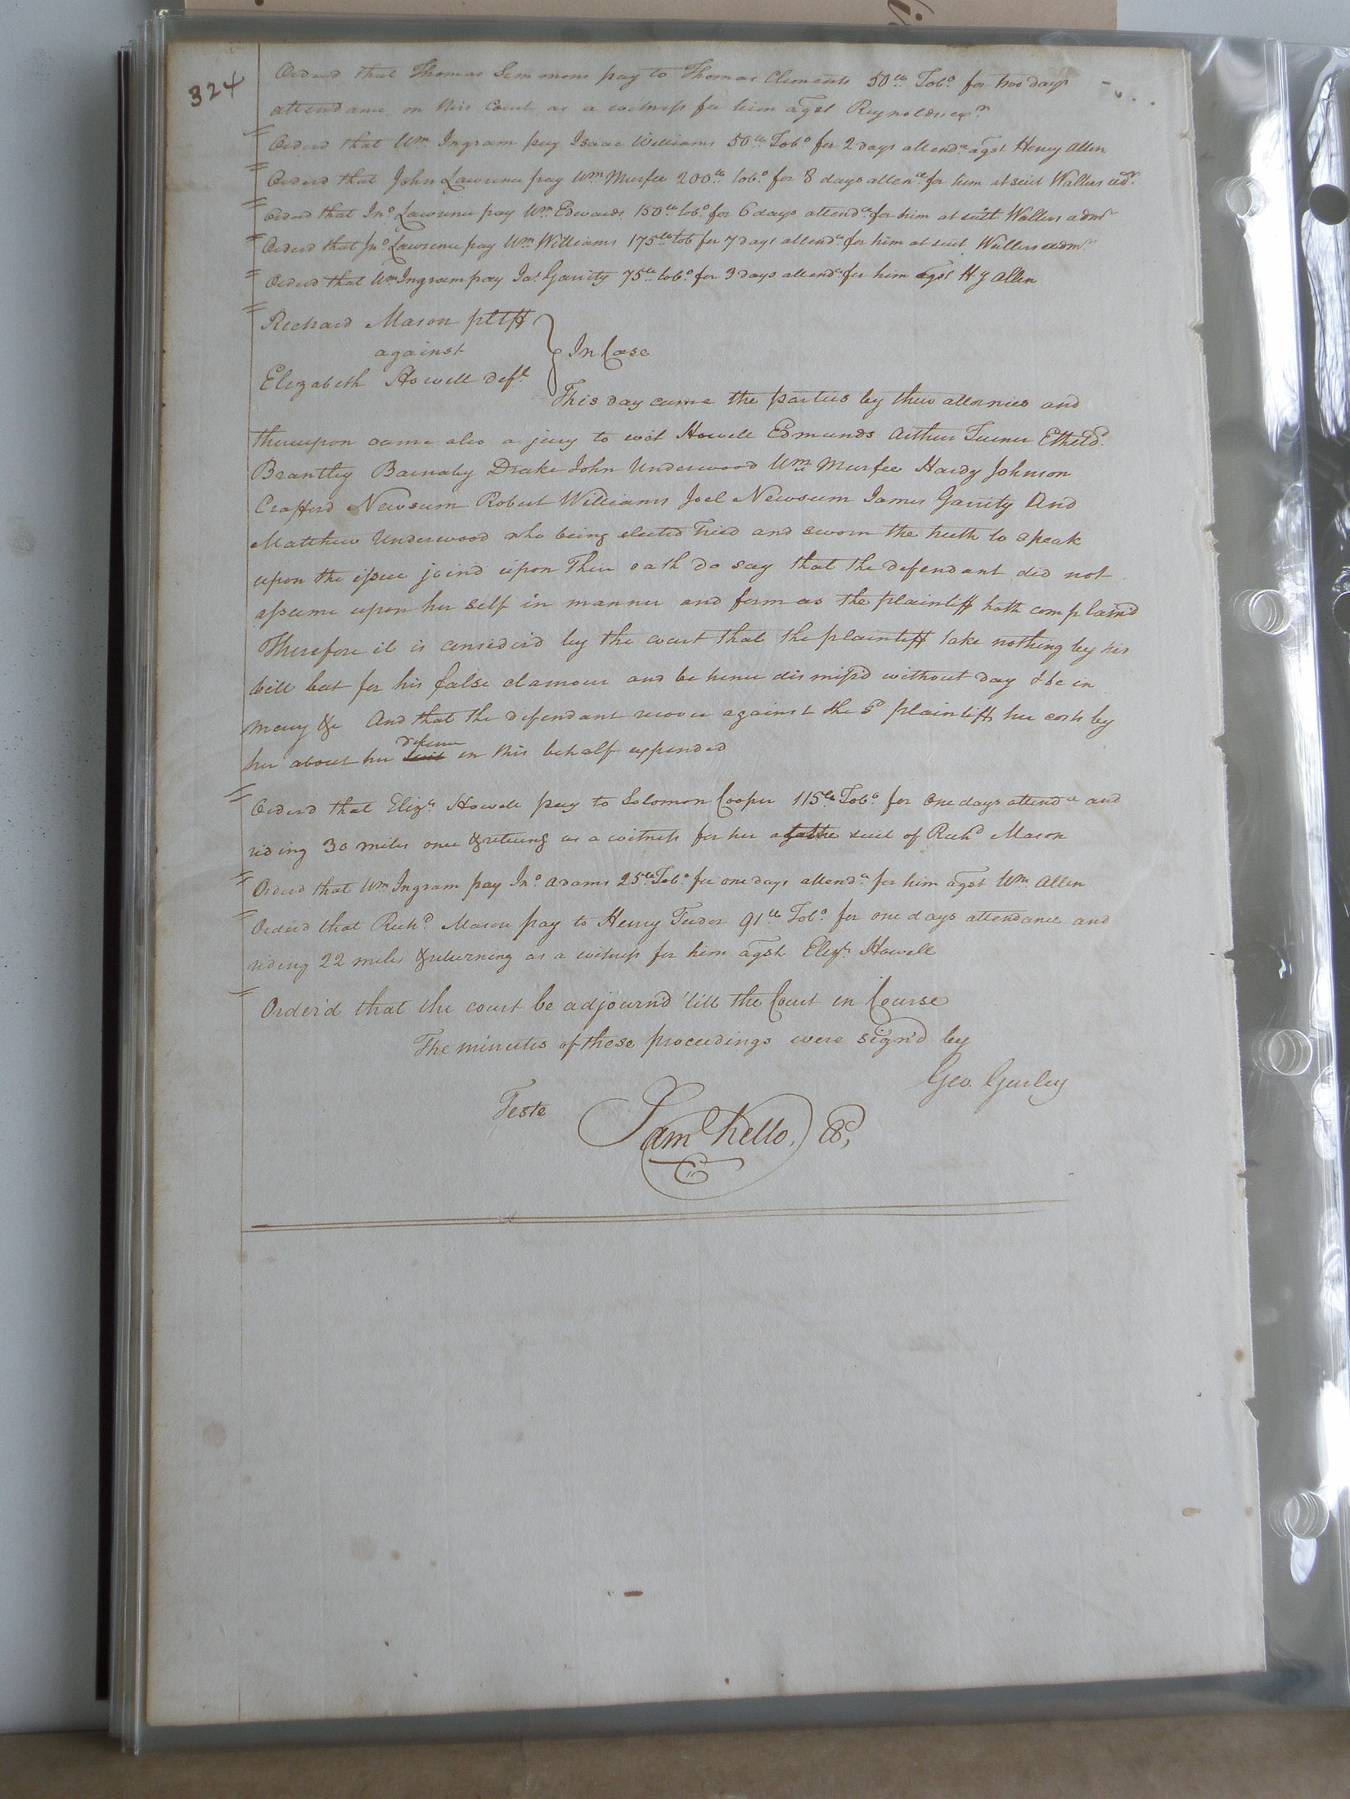 324
Orderd that Thomas Simmons pay to Thomas Clements 50lb Tobo for two days
attendance on this Court as a witness for him agst Reynolds exr
Orderd that Wm Ingram pay Isaac Williams 50lb Tobo for 2 days attende agst Henry Allen
Orderd that John Lawrence pay Wm Murfee 200lb tobo for 8 days attence for him at suit Wallers adr
Orderd that Jno Lawrence pay Wm Edwards 150lb tobo for 6 days attende for him at suit Wallers admr
Orderd that Jno Lawrence pay Wm Williams 175lb tob for 7 days attende for him at suit Wallers admr
Orderd that Wm Ingram pay Jas Garrity 75lb tobo for 3 days attende for him agst Hy Allen
Richard Mason pltff
against
In Case
Elizabeth Howell deft
This day came the parties by their attornies and
thereupon came also a jury to wit Howell Edmunds Arthur Turner Etheld
Brantley Barnaby Drake John Underwood Wm Murfee Hardy Johnson
Crafford Newsum Robert Williams Joel Newsum James Garrity And
Matthew Underwood who being elected tried and sworn the truth to speak
upon the issue joind upon Their oath do say that the defendant did not
assume upon her self in manner and form as the plaintiff hath complain'd
Therefore it is consider'd by the court that the plaintiff take nothing by his
bill but for his false clamour and be hence dismiss'd without day & be in
mercy &c And that the defendant recover against the sd plaintiff her costs by
her about her suit defence in this behalf expended
Orderd that Elizth Howell pay to Solomon Cooper 115lb Tobo for one days attende and
riding 30 miles once & returng as a witness for her at the suit of Richd Mason
Orderd that Wm Ingram pay Jno Adams 25lb Tobo for one days attende for him agst Wm Allen
Orderd that Richd Mason pay to Henry Tudor 91lb Tobo for one days attendance and
riding 22 miles & returning as a witness for him agst Elizth Howell
Order'd that the court be adjourn'd 'till the Court in Course
The minutes of these proceedings were sign'd by
Geo. Gurley
Teste
Sam Kello,